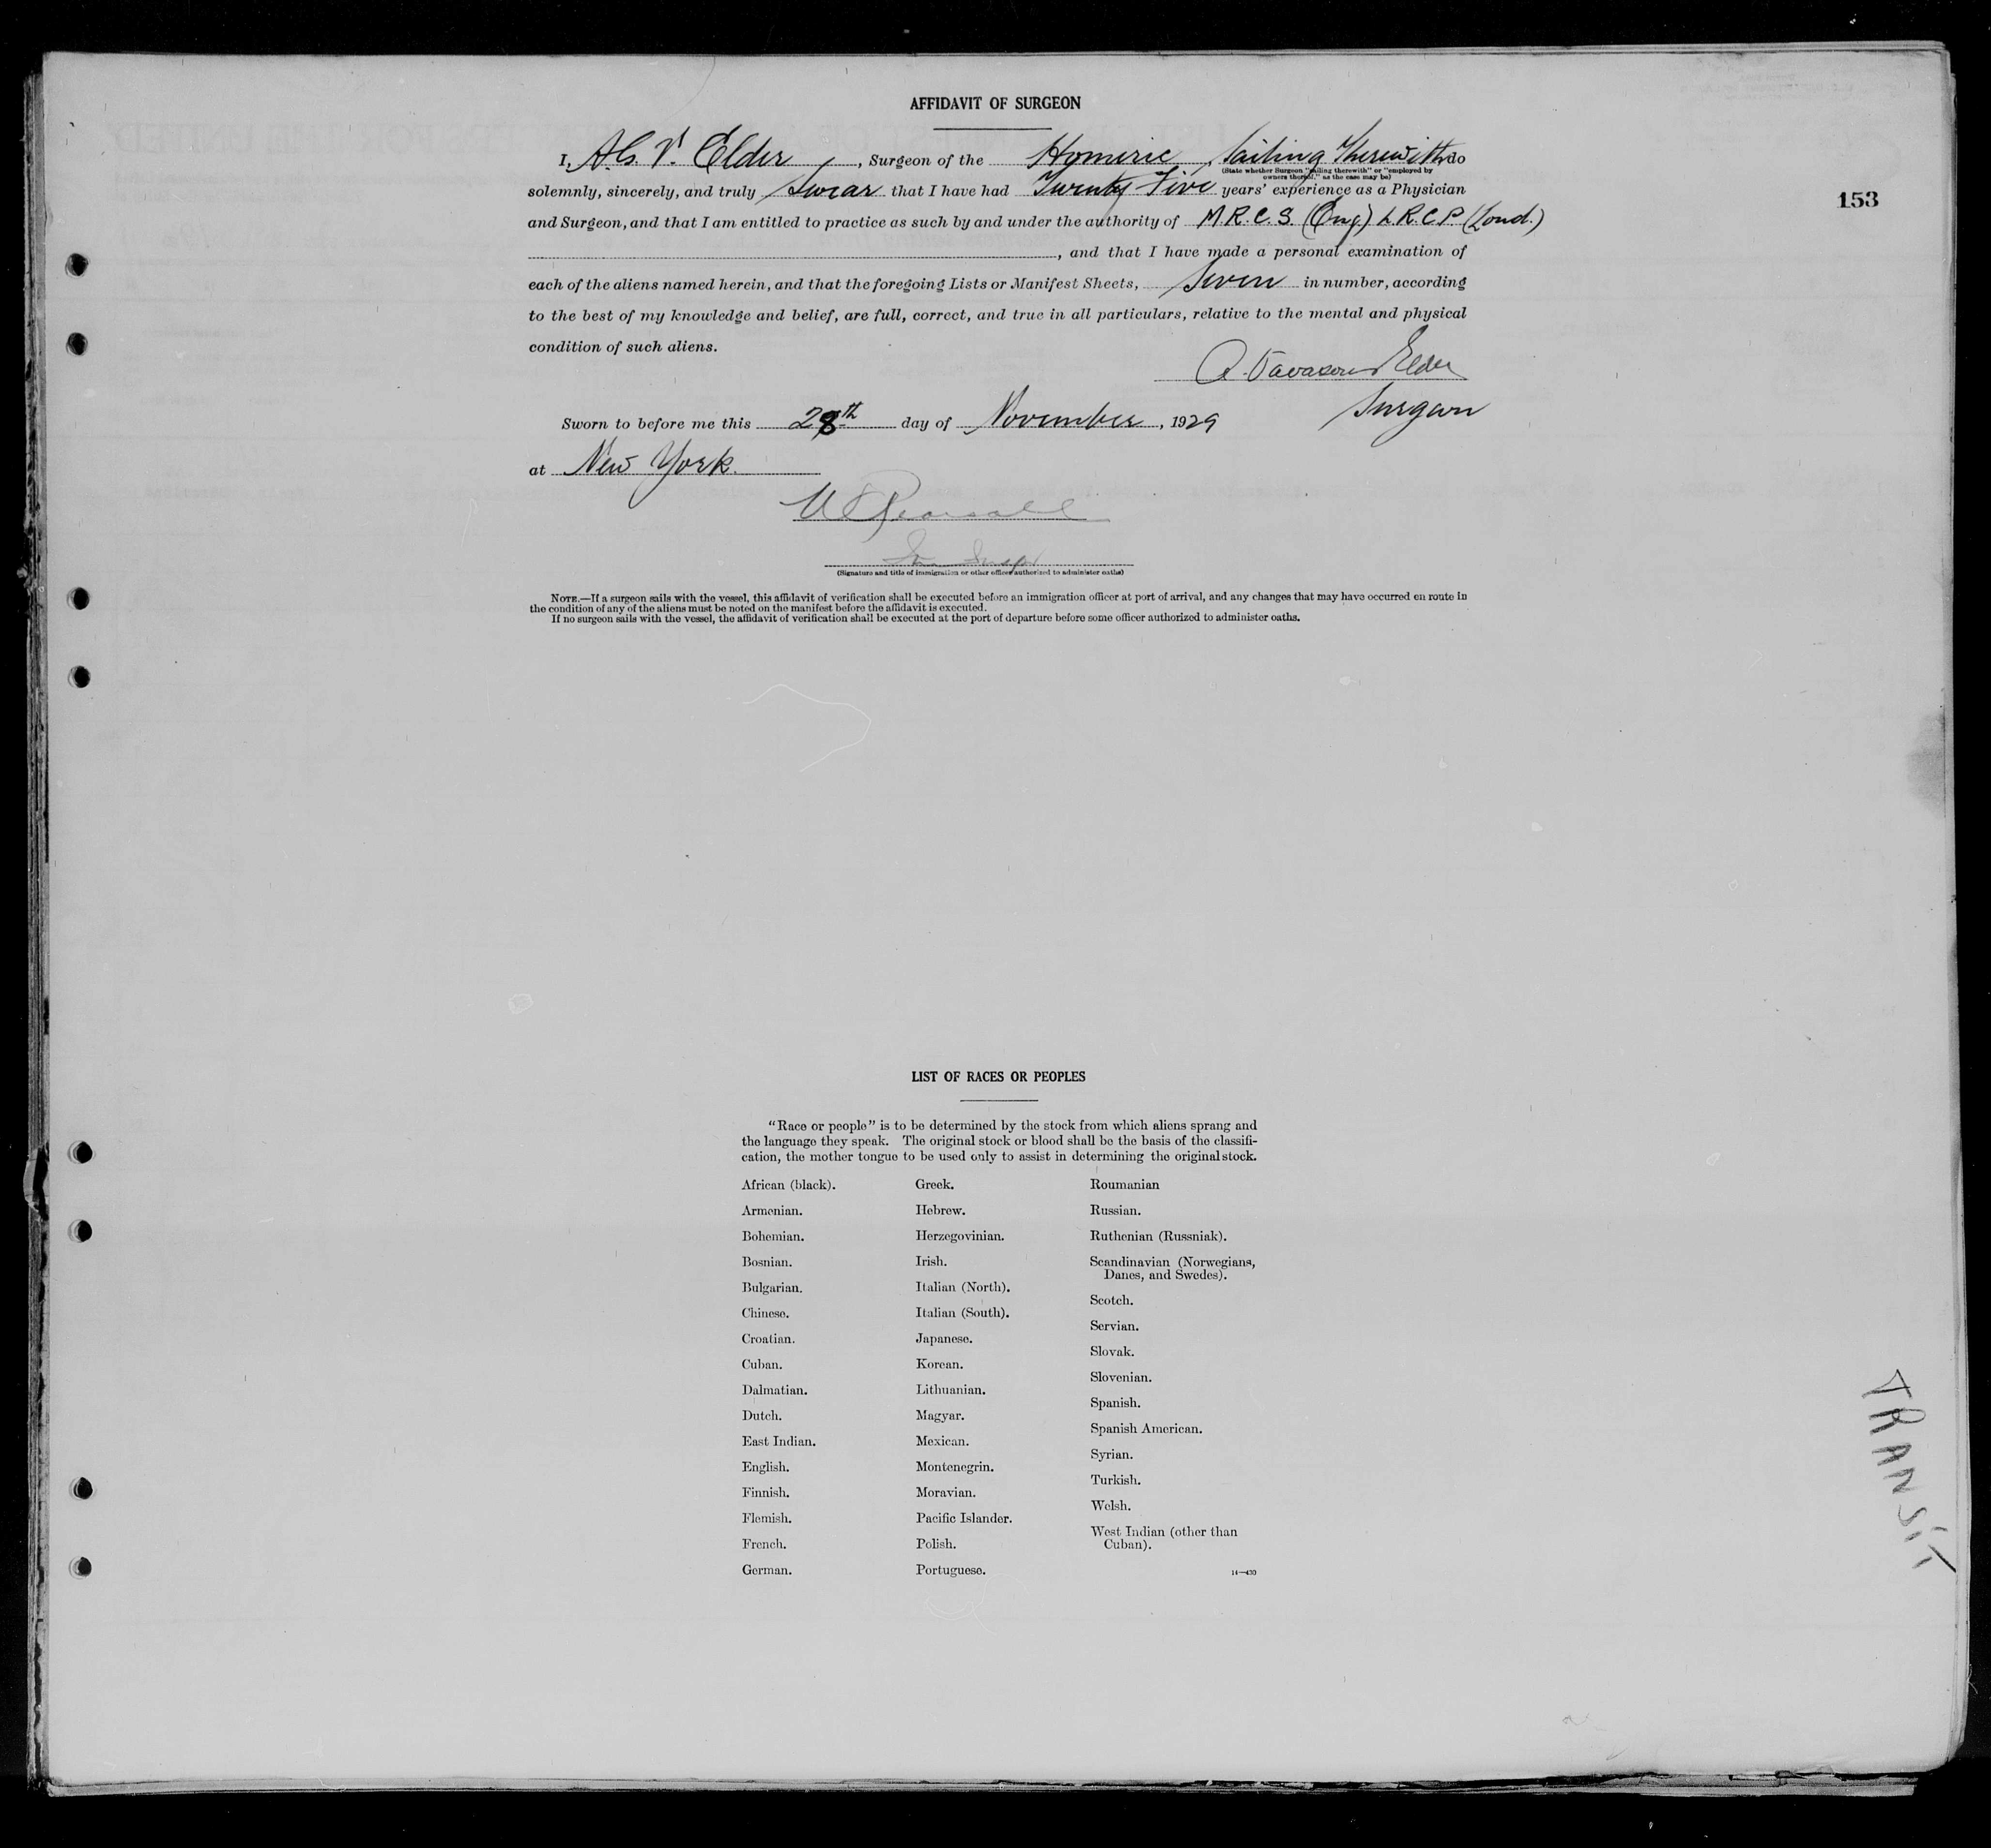 AFFIDAVIT OF SURGEON
I, A. V. Elder, Surgeon of the Homeric, Sailing Therewith, do
(State whether Surgeon "sailing therewith" or "employed by
owners thereof," as the case may be)
solemnly, sincerely, and truly Swear that I have had Twenty Five years' experience as a Physician
153
and Surgeon, and that I am entitled to practice as such by and under the authority of M.R.C.S. (Eng.) L.R.C.P. (Lond.)
, and that I have made a personal examination of
each of the aliens named herein, and that the foregoing Lists or Manifest Sheets, Seven in number, according
to the best of my knowledge and belief, are full, correct, and true in all particulars, relative to the mental and physical
condition of such aliens.
A. Elder
Surgeon
Sworn to before me this 28th day of November, 1929
at New York.
(Signature and title of immigration or other officer authorized to administer oaths)
NOTE.—If a surgeon sails with the vessel, this affidavit of verification shall be executed before an immigration officer at port of arrival, and any changes that may have occurred en route in
the condition of any of the aliens must be noted on the manifest before the affidavit is executed.
If no surgeon sails with the vessel, the affidavit of verification shall be executed at the port of departure before some officer authorized to administer oaths.
LIST OF RACES OR PEOPLES
"Race or people" is to be determined by the stock from which aliens sprang and
the language they speak. The original stock or blood shall be the basis of the classifi-
cation, the mother tongue to be used only to assist in determining the original stock.
African (black).
Armenian.
Bohemian.
Bosnian.
Bulgarian.
Chinese.
Croatian.
Cuban.
Dalmatian.
Dutch.
East Indian.
English.
Finnish.
Flemish.
French.
German.
Greek.
Hebrew.
Herzegovinian.
Irish.
Italian (North).
Italian (South).
Japanese.
Korean.
Lithuanian.
Magyar.
Mexican.
Montenegrin.
Moravian.
Pacific Islander.
Polish.
Portuguese.
Roumanian
Russian.
Ruthenian (Russniak).
Scandinavian (Norwegians,
Danes, and Swedes).
Scotch.
Servian.
Slovak.
Slovenian.
Spanish.
Spanish American.
Syrian.
Turkish.
Welsh.
West Indian (other than
Cuban).
14—430
TRANSIT